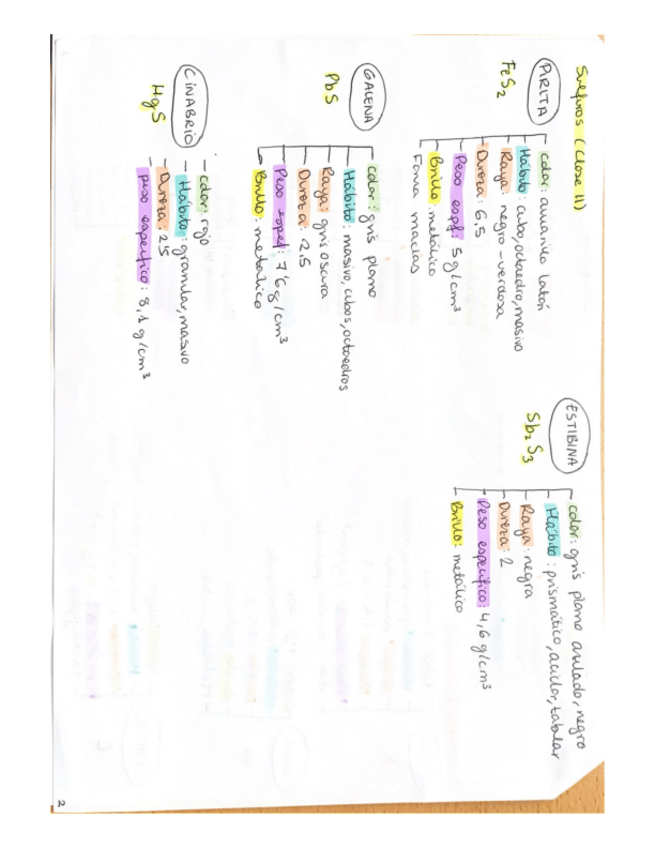 Sulfuros (Clase II)
PIRITA
FeS2
color: amarillo latón
Hábito: cubo, octaedro, masivo
Raya: negro-verdosa
Dureza: 6.5
Peso espf: 5 g/cm3
Brillo: metálico
Forma maclas
GALENA
PbS
color: gris plomo
Hábito: masivo, cubos, octaedros
Raya: gris oscura
Dureza: 2,5
Peso espef: 7'6 g/cm3
Brillo: metálico
CINABRIO
HgS
color: rojo
Hábito: granular, masivo
Dureza: 2'5
peso específico: 8,1 g/cm3
ESTIBINA
Sb2S3
color: gris plomo azulado, negro
Hábito: prismático, acicular, tabular
Raya: negra
Dureza: 2
Peso específico: 4,6 g/cm3
Brillo: metálico
2